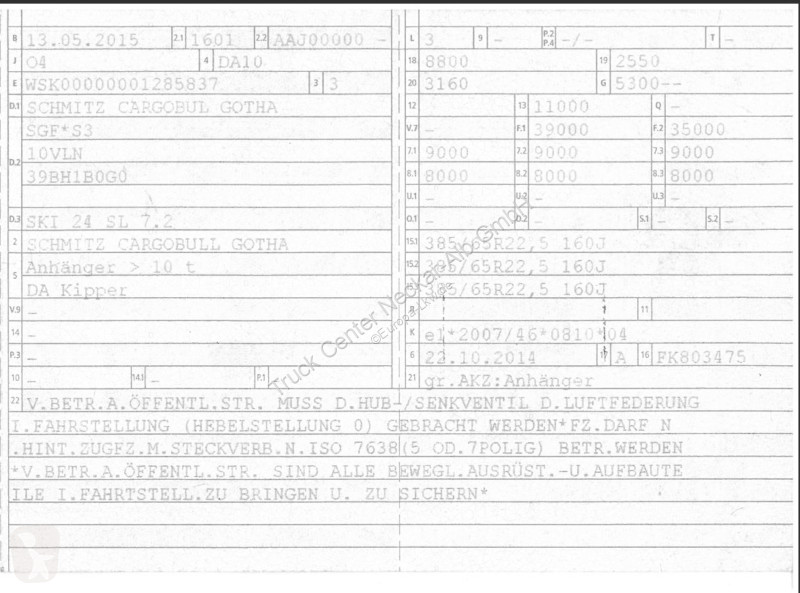 B 13.05.2015 2.1 1601 2.2 AAJ00000 -
J 04 4 DA10
E WSK00000001285837 3 3
D.1 SCHMITZ CARGOBUL GOTHA
SGF*S3
D.2 10VLN
39BH1B0G0
D.3 SKI 24 SL 7.2
2 SCHMITZ CARGOBULL GOTHA
5 Anhänger > 10 t
DA Kipper
V.9 -
14 -
P.3 -
10 - 14.1 - P.1
L 3 9 - P.2 P.4 -/- T -
18 8800 19 2550
20 3160 G 5300--
12 13 11000 Q -
V.7 - F.1 39000 F.2 35000
7.1 9000 7.2 9000 7.3 9000
8.1 8000 8.2 8000 8.3 8000
U.1 - U.2 - U.3 -
O.1 - O.2 - S.1 - S.2 -
15.1 385/65R22,5 160J
15.2 385/65R22,5 160J
385/65R22,5 160J
R 11
K e1*2007/46*0810*04
6 22.10.2014 17 A 16 FK803475
21 gr.AKZ:Anhänger
22 V.BETR.A.ÖFFENTL.STR. MUSS D.HUB-/SENKVENTIL D.LUFTFEDERUNG
I.FAHRSTELLUNG (HEBELSTELLUNG 0) GEBRACHT WERDEN*FZ.DARF N
.HINT.ZUGFZ.M.STECKVERB.N.ISO 7638(5 OD.7POLIG) BETR.WERDEN
*V.BETR.A.ÖFFENTL.STR. SIND ALLE BEWEGL.AUSRÜST.-U.AUFBAUTE
ILE I.FAHRTSTELL.ZU BRINGEN U. ZU SICHERN*
Truck Center Neckar-Alb GmbH
©Europa-Lkw.de